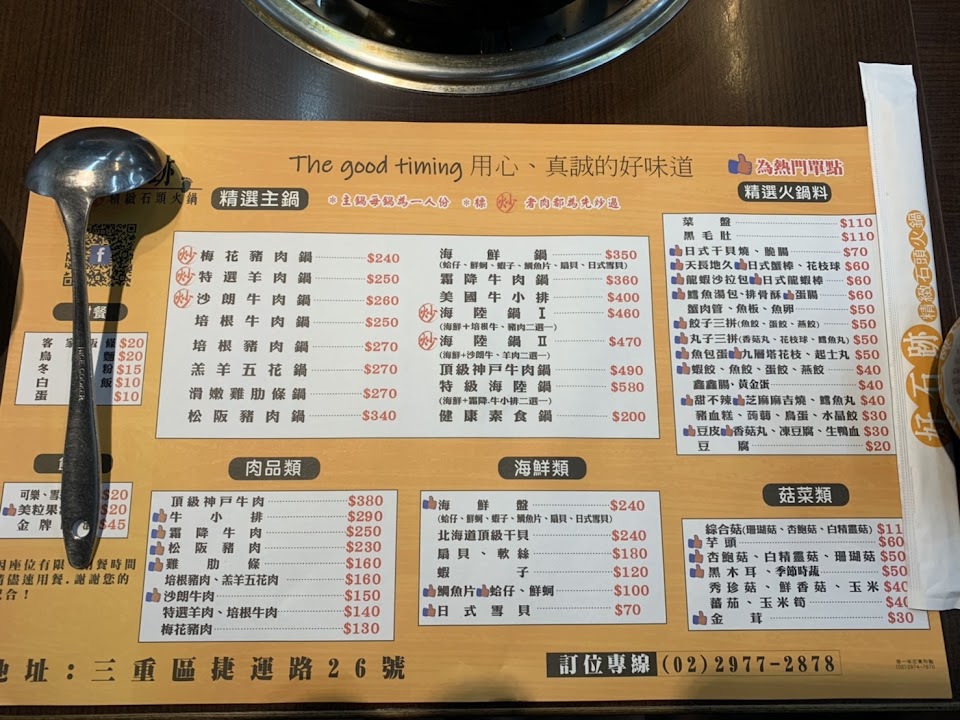 The good timing 用心、真誠的好味道
為熱門單點
精緻石頭火鍋
精選主鍋
*主鍋每鍋為一人份 *標 炒 者肉都為先炒過
炒 梅花豬肉鍋 $240
炒 特選羊肉鍋 $250
炒 沙朗牛肉鍋 $260
培根牛肉鍋 $250
培根豬肉鍋 $270
羔羊五花鍋 $270
滑嫩雞肋條鍋 $270
松阪豬肉鍋 $340
海鮮鍋 $350
(蛤仔、鮮蚵、蝦子、鯛魚片、扇貝、日式雪貝)
霜降牛肉鍋 $360
美國牛小排 $400
炒 海陸鍋 I $460
(海鮮+培根牛、豬肉二選一)
炒 海陸鍋 II $470
(海鮮+沙朗牛、羊肉二選一)
頂級神戶牛肉鍋 $490
特級海陸鍋 $580
(海鮮+霜降.牛小排二選一)
健康素食鍋 $200
精選火鍋料
菜盤 $110
黑毛肚 $110
日式干貝燒、脆腸 $70
天長地久 日式蟹棒、花枝球 $60
龍蝦沙拉包 日式龍蝦棒 $60
鱈魚湯包、排骨酥 蛋腸 $60
蟹肉管、魚板、魚卵 $50
餃子三拼(魚餃、蛋餃、燕餃) $50
丸子三拼(香菇丸、花枝球、鱈魚丸) $50
魚包蛋 九層塔花枝、起士丸 $50
蝦餃、魚餃、蛋餃、燕餃 $40
鑫鑫腸、黃金蛋 $40
甜不辣 芝麻麻吉燒、鱈魚丸 $40
豬血糕、蒟蒻、鳥蛋、水晶餃 $30
豆皮 香菇丸、凍豆腐、生鴨血 $30
豆腐 $20
餐
客家 條 $20
烏 麵 $20
冬 粉 $15
白 飯 $10
蛋 $10
可樂、雪 $20
美粒果 $20
金牌 $45
因座位有限 用餐時間
請儘速用餐.謝謝您的
配合！
肉品類
頂級神戶牛肉 $380
牛小排 $290
霜降牛肉 $250
松阪豬肉 $230
雞肋條 $160
培根豬肉、羔羊五花肉 $160
沙朗牛肉 $150
特選羊肉、培根牛肉 $140
梅花豬肉 $130
海鮮類
海鮮盤 $240
(蛤仔、鮮蚵、蝦子、鯛魚片、扇貝、日式雪貝)
北海道頂級干貝 $240
扇貝、軟絲 $180
蝦子 $120
鯛魚片 蛤仔、鮮蚵 $100
日式雪貝 $70
菇菜類
綜合菇(珊瑚菇、杏鮑菇、白精靈菇) $11
芋頭 $60
杏鮑菇、白精靈菇、珊瑚菇 $50
黑木耳、季節時蔬 $50
秀珍菇、鮮香菇、玉米 $40
蕃茄、玉米筍 $40
金茸 $30
地址：三重區捷運路26號
訂位專線 (02)2977-2878
好石跡 精緻石頭火鍋